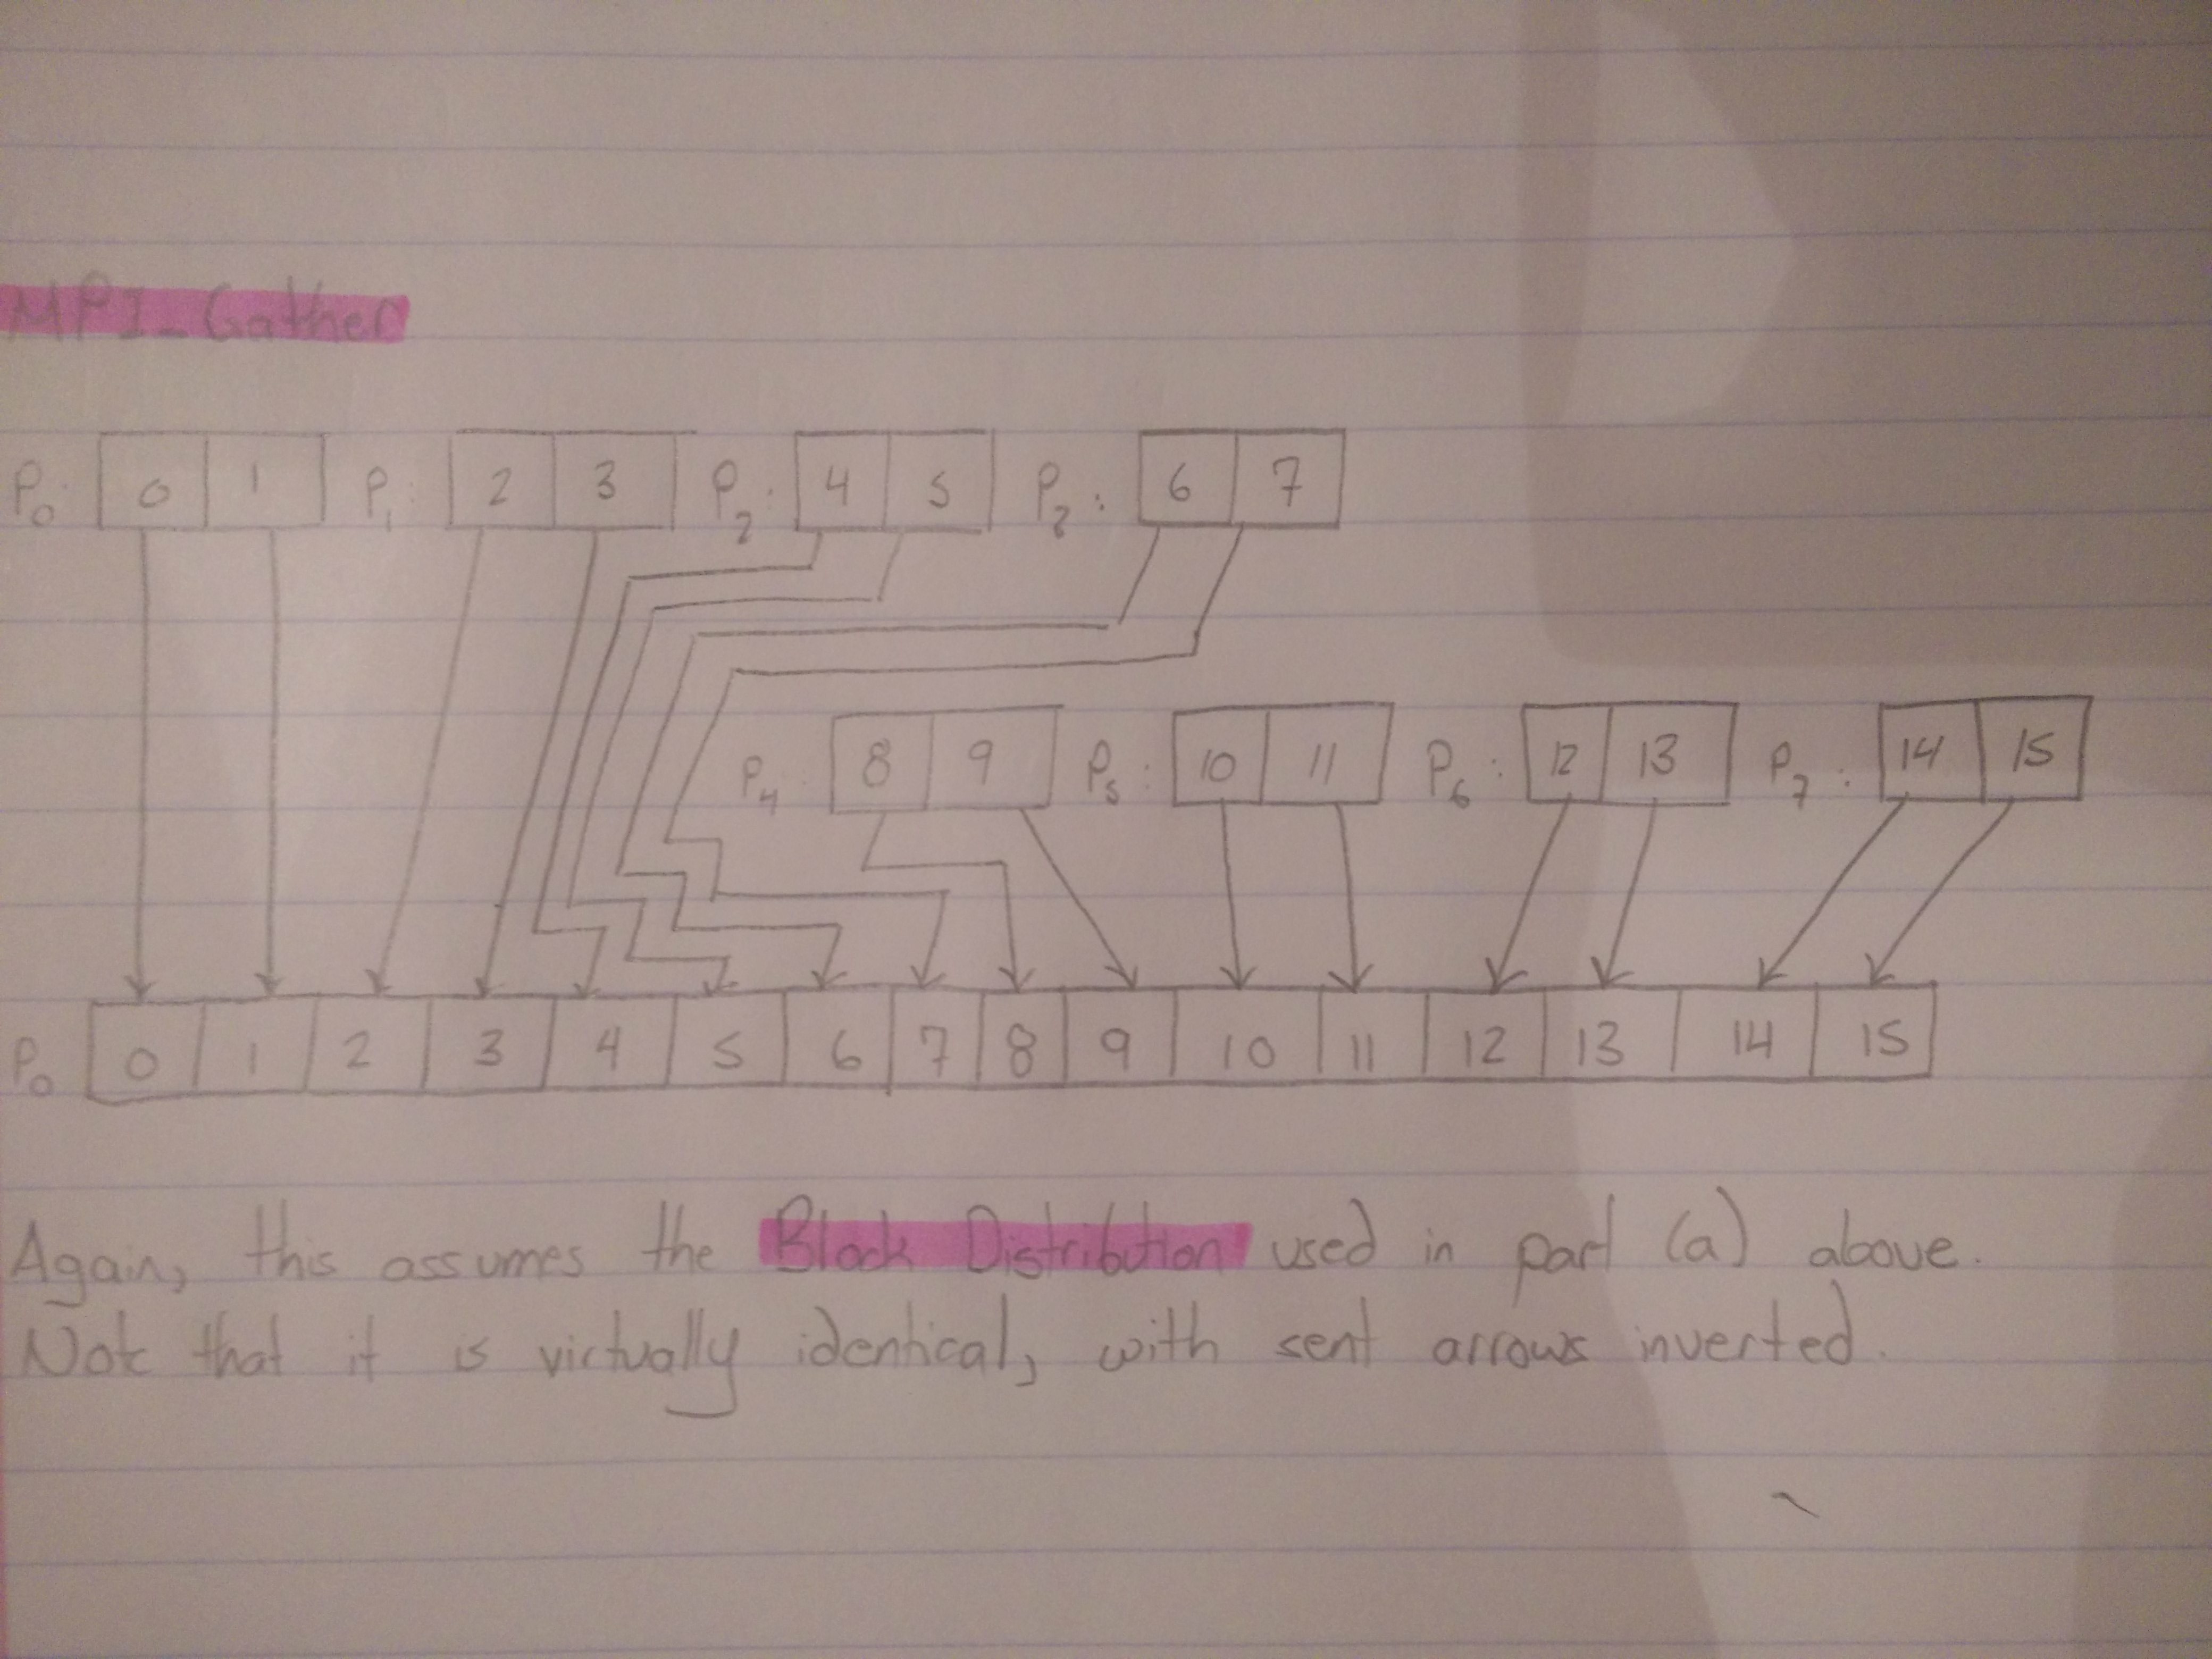 MPI_Gather
P0: 0 1 P1: 2 3 P2: 4 5 P3: 6 7
P4: 8 9 P5: 10 11 P6: 12 13 P7: 14 15
P0 0 1 2 3 4 5 6 7 8 9 10 11 12 13 14 15
Again, this assumes the Block Distribution used in part (a) above.
Note that it is virtually identical, with sent arrows inverted.